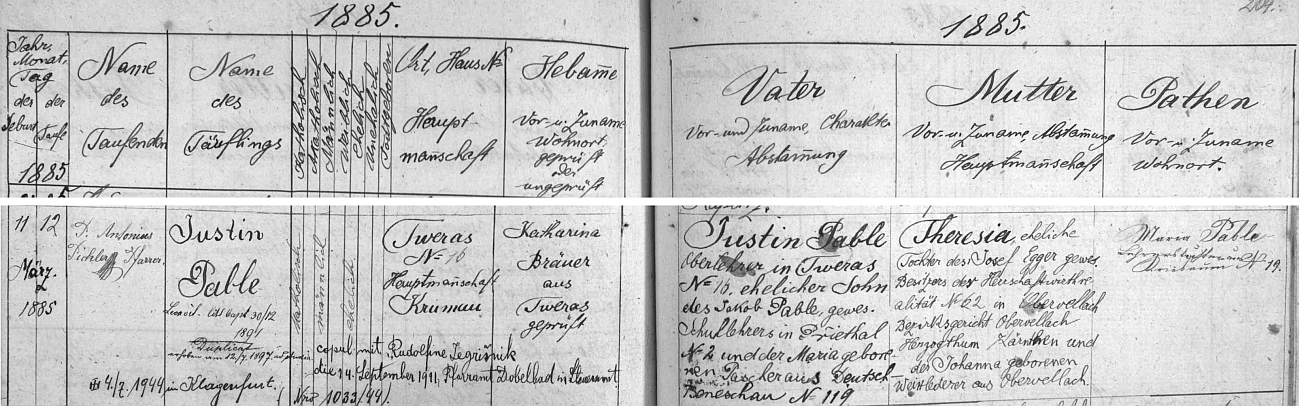 1885.
Jahr,
Monat,
Tag
der der
Geburt Taufe
1885
Name
des
Taufenden
Name
des
Täuflings
Katholisch
Akatholisch
Männlich
Weiblich
Ehelich
Unehelich
Todtgeboren
Ort, Haus No
Haupt
manschaft
Hebam̅e
Vor- u. Zuname
Wohnort,
geprüft
oder
ungeprüft
1885.
Vater
Vor- und Zuname, Charakter
Abstam̅ung
Mutter
Vor- u. Zuname, Abstam̅ung
Hauptman̅schaft
Pathen
Vor- u. Zuname
Wohnort.
11 12
März
1885
P. Antonius
Pichler Pfarrer.
Justin
Pable
30/12
1894
Duplicat
am 12/7 1897
4./7. 1944 in Klagenfurt.
katholisch
männlich
ehelich.
Tweras
No 15
Hauptmanschaft
Krumau.
Katharina
Bräuer
aus
Tweras
geprüft
copul. mit Rudolfine
die 14. September 1911, Pfarramt Dobelbad in Steiermark
1033/44
Justin Pable
Oberlehrer in Tweras
No 15. ehelicher Sohn
des Jakob Pable, gewes.
Schullehrers in Priethal
No 2 und der Maria gebore-
nen Pascher aus Deutsch-
Beneschau No 119
Theresia, eheliche
Tochter des Josef Egger gewes.
Besitzers der Herrschaftwirthre-
alität No 62 in Obervellach
Bezirksgericht Obervellach
Herzogthum Kärnthen und
der Johanna geborenen
Weixlederer aus Obervellach.
Maria Pable
Lehrerstochter aus
No 19.